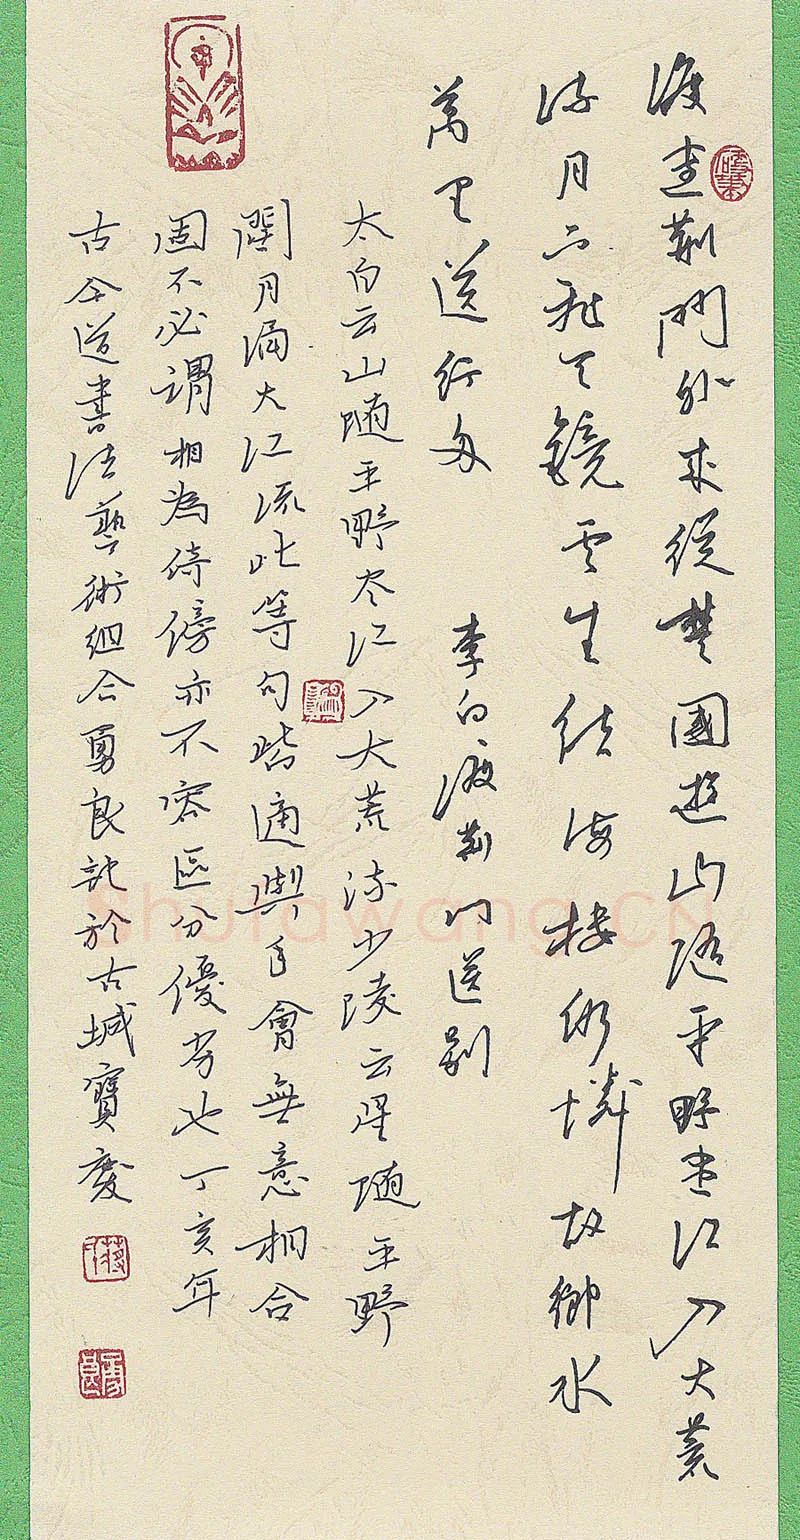 渡遠荆門外來從楚國遊山随平野盡江入大荒
流月下飛天鏡雲生结海楼仍憐故鄉水
萬里送行舟
李白渡荆门送别
太白云山随平野尽江入大荒流少陵云星随平野
闊月涌大江流此等句皆適與手會無意相合
固不必谓相為倚傍亦不容區分優劣也丁亥年
古今道書法藝術組合勇良記於古城寶慶
Shufawang.CN